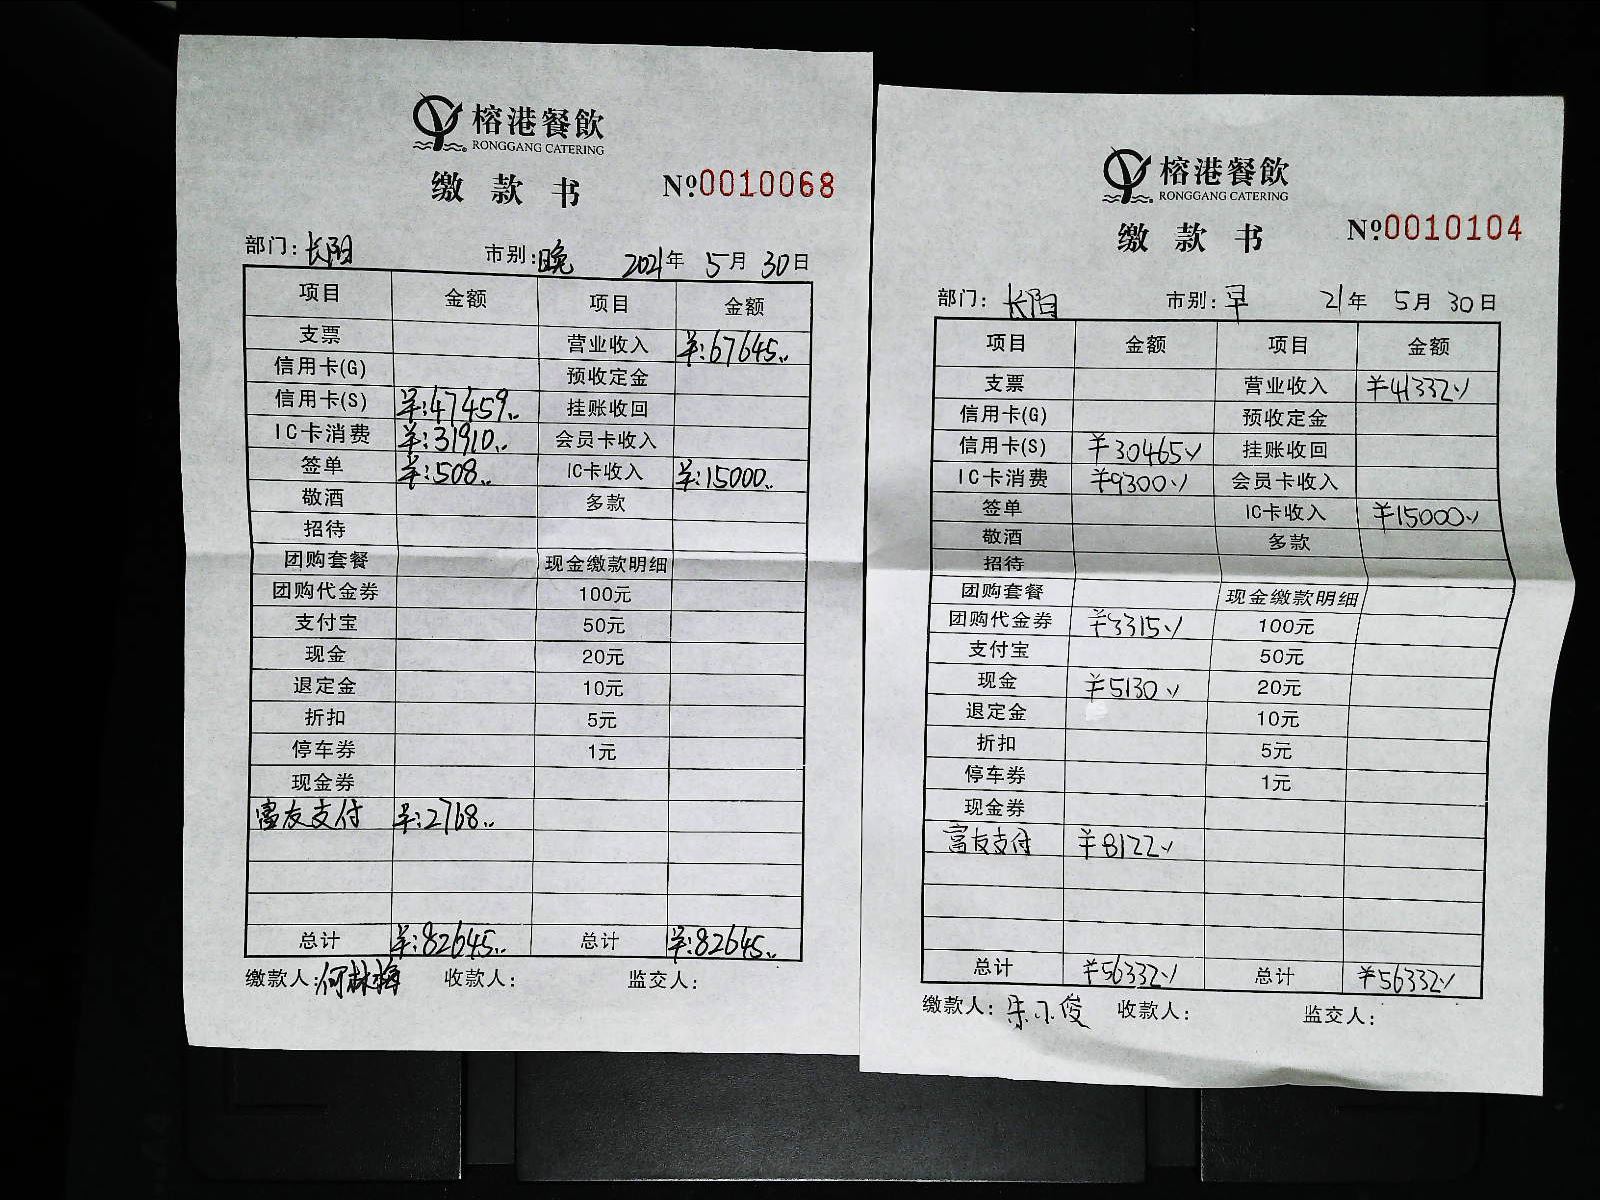 榕港餐飲
RONGGANG CATERING
缴款书 №0010068
部门: 长阳 市别: 晚 2021年 5月 30日
项目 金额 项目 金额
支票 营业收入 ¥:67645..
信用卡(G) 预收定金
信用卡(S) ¥:47459.. 挂账收回
IC卡消费 ¥:31910.. 会员卡收入
签单 ¥:508.. IC卡收入 ¥:15000..
敬酒 多款
招待
团购套餐 现金缴款明细
团购代金券 100元
支付宝 50元
现金 20元
退定金 10元
折扣 5元
停车券 1元
现金券
富友支付 ¥:2768..
总计 ¥:82645.. 总计 ¥:82645..
缴款人: 何林梅 收款人: 监交人:
榕港餐飲
RONGGANG CATERING
缴款书 №0010104
部门: 长阳 市别: 早 21年 5月 30日
项目 金额 项目 金额
支票 营业收入 ¥41332
信用卡(G) 预收定金
信用卡(S) ¥30465 挂账收回
IC卡消费 ¥9300 会员卡收入
签单 IC卡收入 ¥15000
敬酒 多款
招待
团购套餐 现金缴款明细
团购代金券 ¥3315 100元
支付宝 50元
现金 ¥5130 20元
退定金 10元
折扣 5元
停车券 1元
现金券
富友支付 ¥8122
总计 ¥56332 总计 ¥56332
缴款人: 朱小俊 收款人: 监交人: